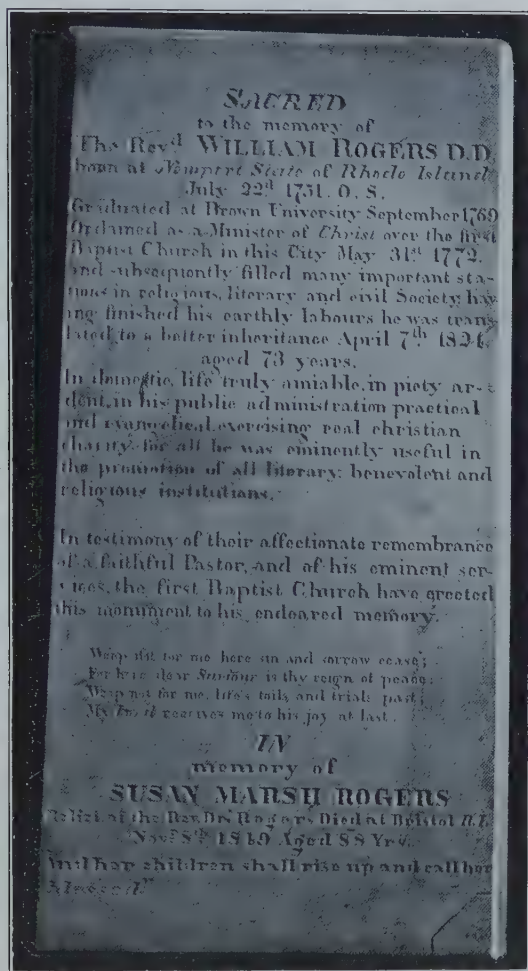 SACRED
to the memory of
The Rev.d WILLIAM ROGERS D.D.
born at Newport State of Rhode Island
July 22d 1751. O. S.
Graduated at Brown University September 1769
Ordained as a Minister of Christ over the first
Baptist Church in this City May 31st 1772.
and subsequently filled many important sta-
tions in religious, literary and civil Society; hav-
ing finished his earthly labours he was trans-
lated to a better inheritance April 7th 1824.
aged 73 years.
In domestic life truly amiable, in piety ar-
dent, in his public administration practical
and evangelical, exercising real christian
charity for all he was eminently useful in
the promotion of all literary: benevolent and
religious institutions.
In testimony of their affectionate remembrance
of a faithful Pastor, and of his eminent ser-
vices, the first Baptist Church have erected
this monument to his endeared memory.
Weep not for me here sin and sorrow cease;
For here dear Saviour is thy reign of peace;
Weep not for me, life's toils, and trials past;
My receives me to his joy at last.
IN
memory of
SUSAN MARSH ROGERS
Relict of the Rev. Dr. Rogers Died at Bristol R.I.
Novr. 8th 1849 Aged 88 Yrs.
And her children shall rise up and call her
Blessed."